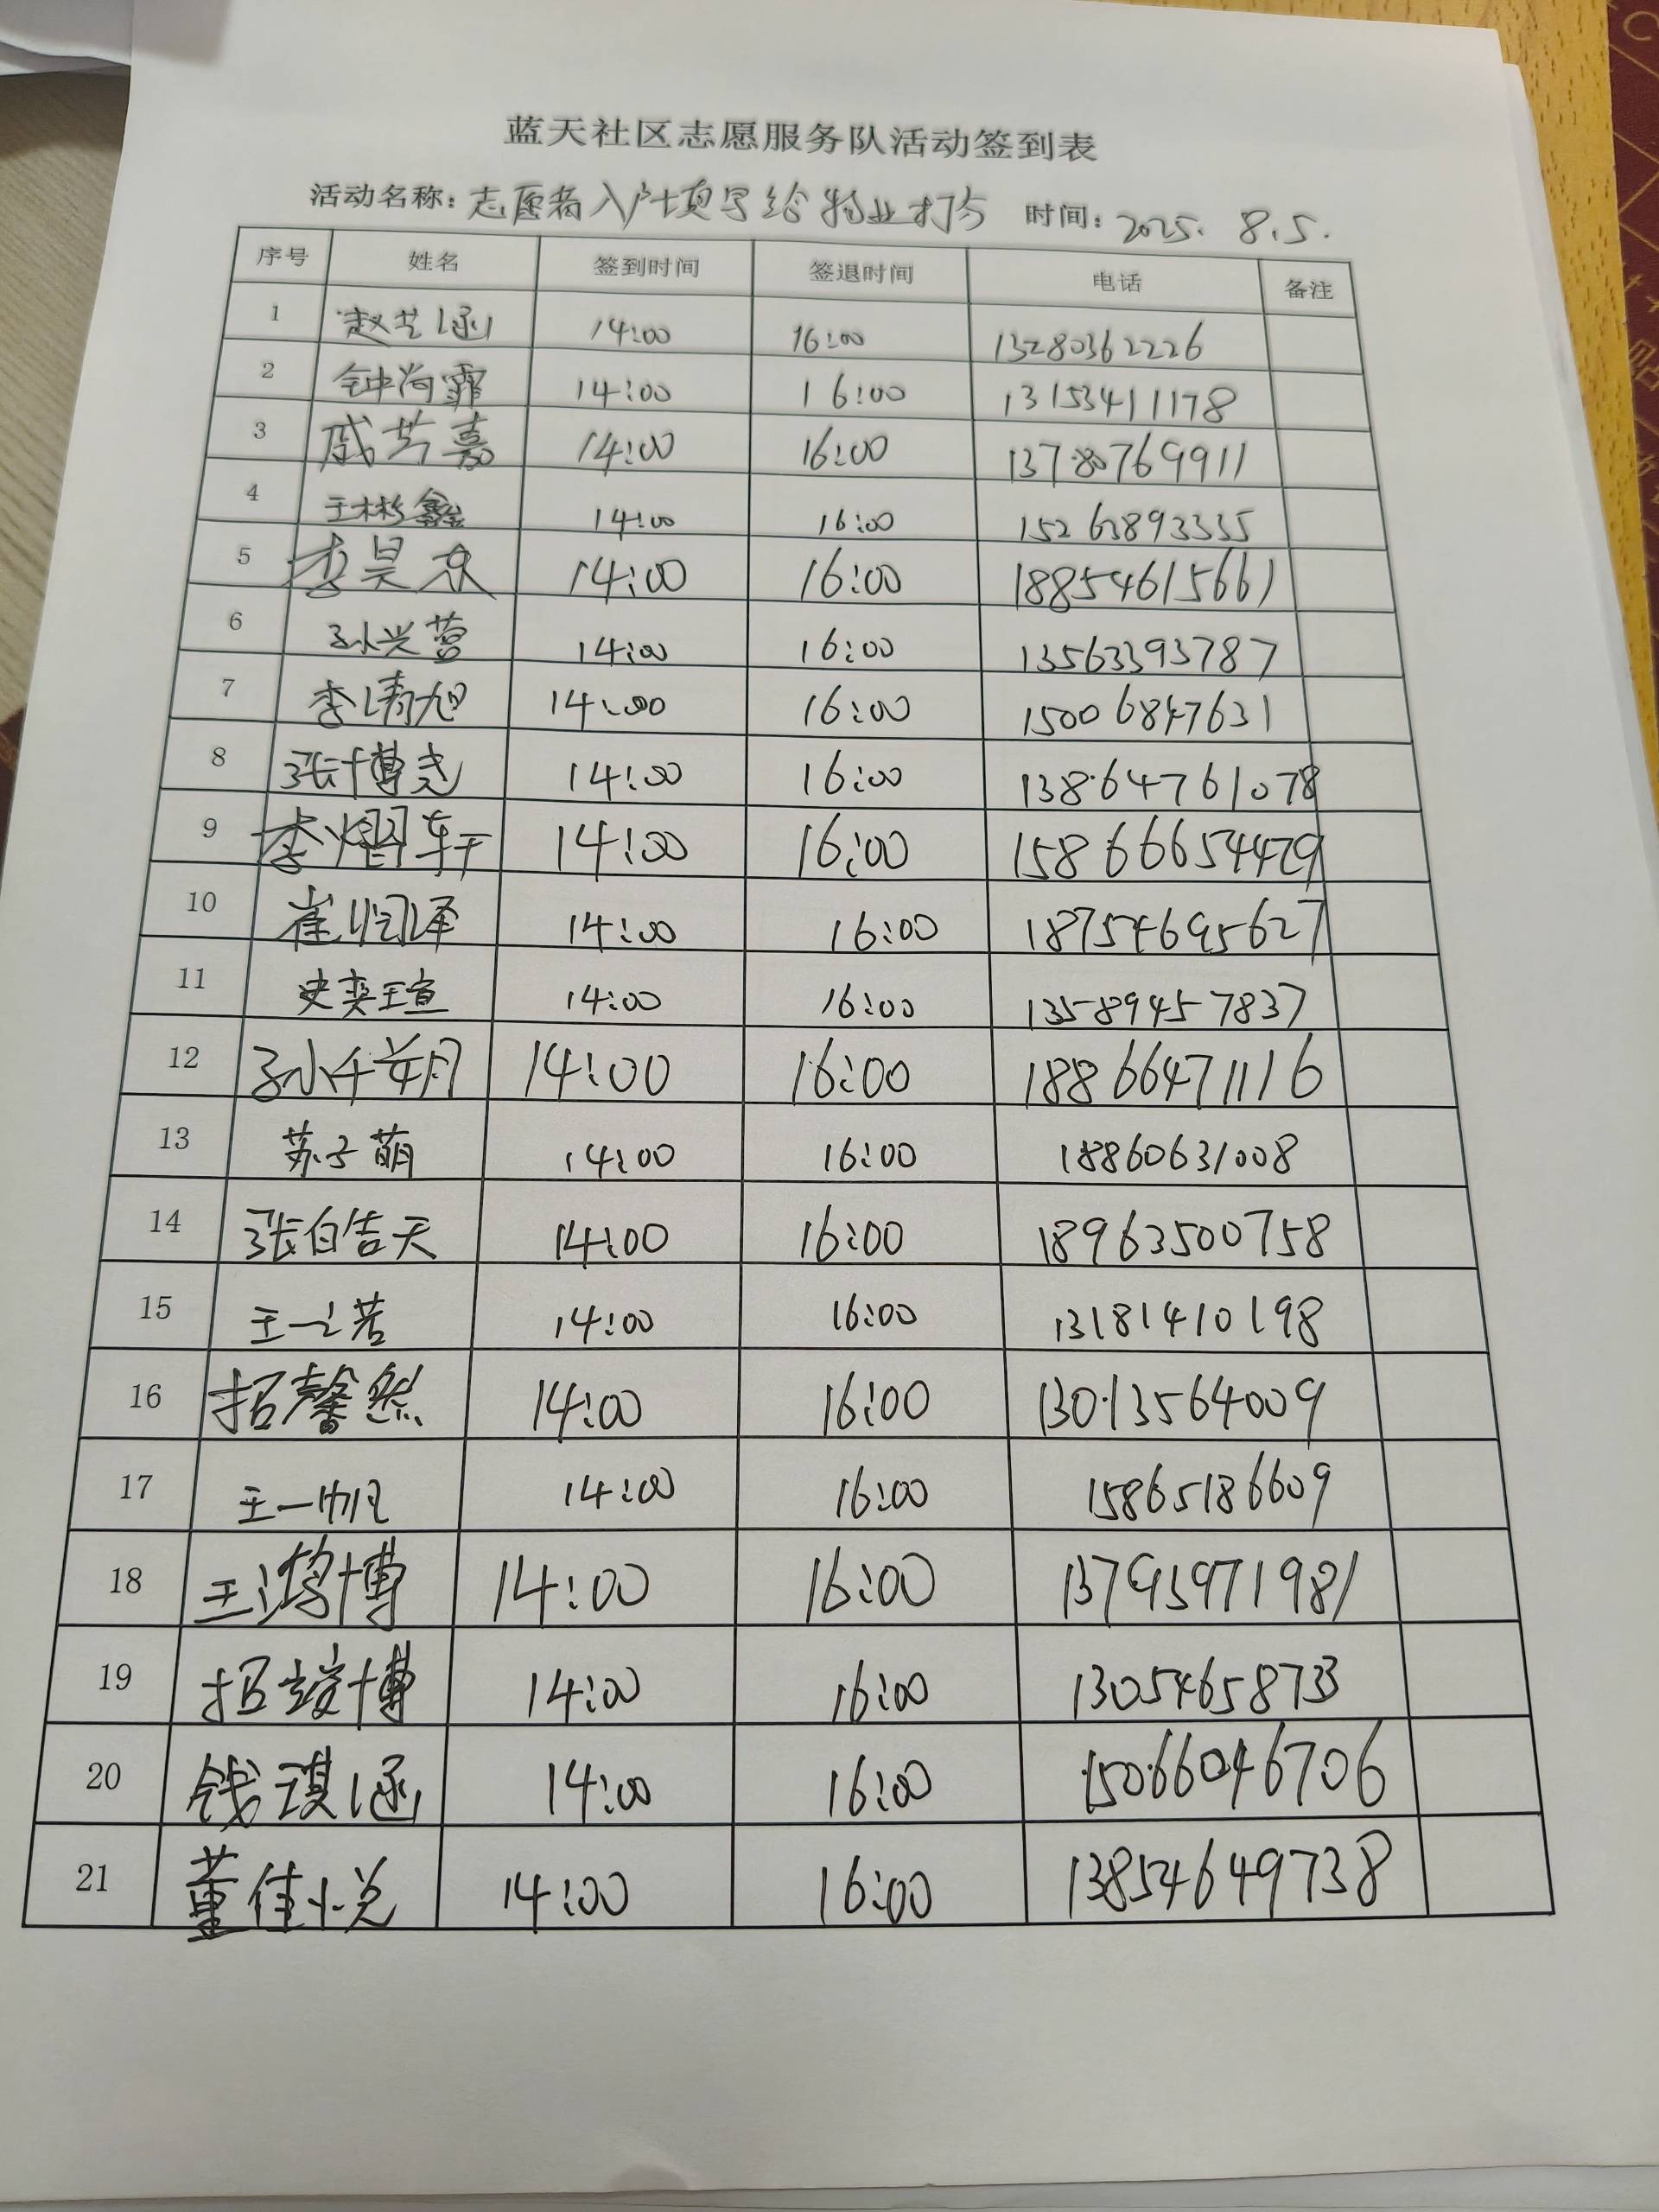 蓝天社区志愿服务队活动签到表
活动名称：志愿者入户填写给物业打分 时间：2025. 8.5.
序号 姓名 签到时间 签退时间 电话 备注
1 赵芸涵 14:00 16:00 13280362226
2 钟尚霏 14:00 16:00 13153411178
3 戚芳嘉 14:00 16:00 13780769911
4 王彬鑫 14:00 16:00 15263893335
5 李昊东 14:00 16:00 18854615661
6 孙兴营 14:00 16:00 13563393787
7 李清旭 14:00 16:00 15006847631
8 张博尧 14:00 16:00 13864761078
9 李熠轩 14:00 16:00 15866654429
10 崔润泽 14:00 16:00 18754695627
11 史奕瑄 14:00 16:00 13589457837
12 孙千 14:00 16:00 18866471116
13 苏子萌 14:00 16:00 18860631008
14 张皓天 14:00 16:00 18963500758
15 王一诺 14:00 16:00 13181410198
16 招馨然 14:00 16:00 13013564009
17 王一帆 14:00 16:00 15865186609
18 王鸿博 14:00 16:00 13793971981
19 招竣博 14:00 16:00 13054658733
20 钱琪涵 14:00 16:00 15066046706
21 董佳悦 14:00 16:00 13854649738